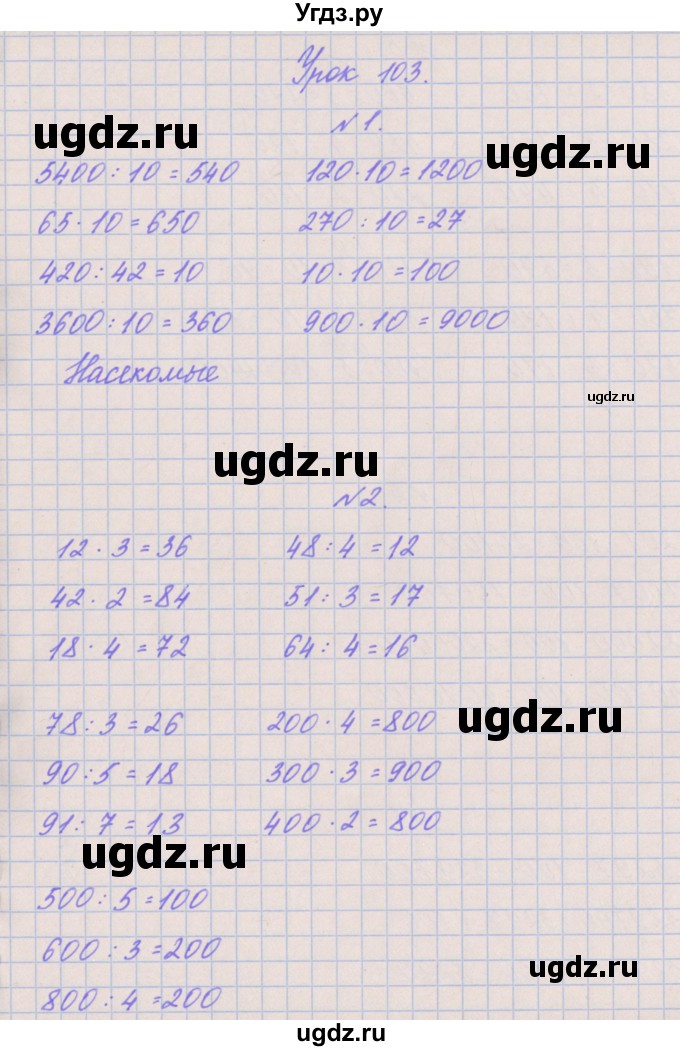 Угдз.ру
Урок 103.
№1.
ugdz.ru
ugdz.ru
5400 : 10 = 540 120 · 10 = 1200
65 · 10 = 650 270 : 10 = 27
420 : 42 = 10 10 · 10 = 100
3600 : 10 = 360 900 · 10 = 9000
Насекомые
ugdz.ru
ugdz.ru
№2.
12 · 3 = 36 48 : 4 = 12
42 · 2 = 84 51 : 3 = 17
18 · 4 = 72 64 : 4 = 16
ugdz.ru
78 : 3 = 26 200 · 4 = 800
90 : 5 = 18 300 · 3 = 900
91 : 7 = 13 400 · 2 = 800
ugdz.ru
500 : 5 = 100
600 : 3 = 200
ugdz.ru
800 : 4 = 200
ugdz.ru